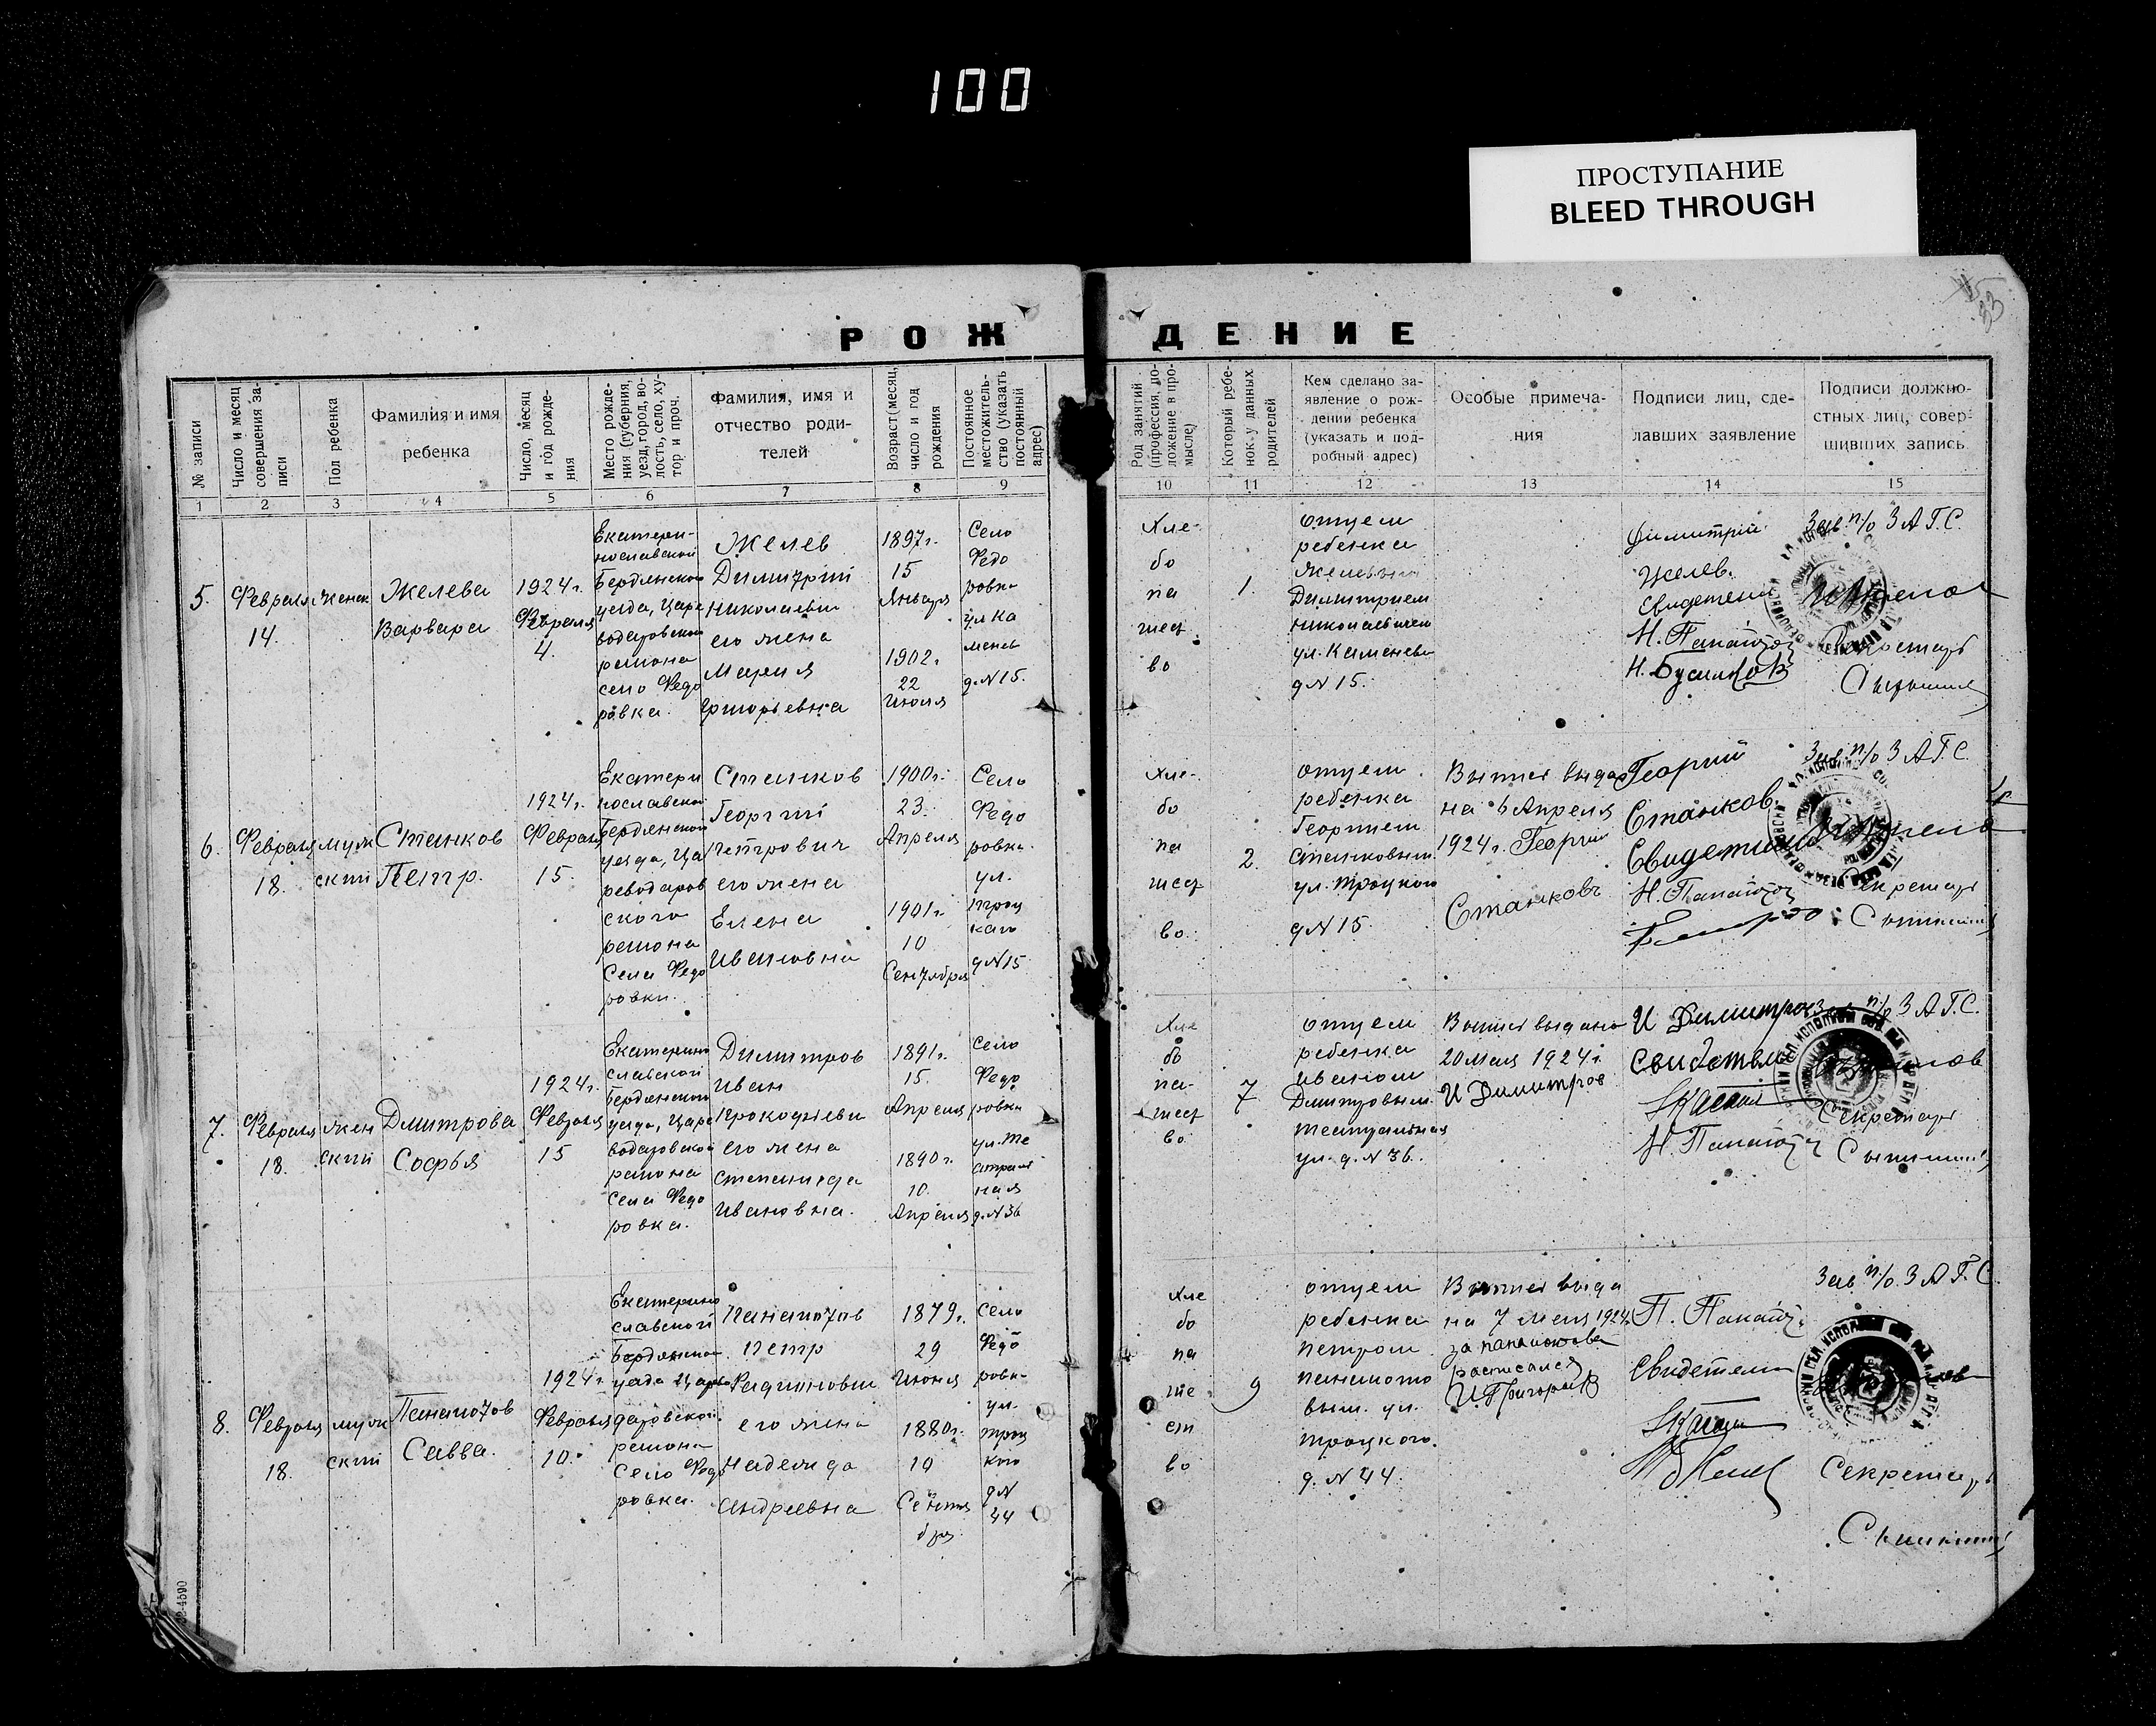 100
ПРОСТУПАНИЕ
BLEED THROUGH
33
РОЖДЕНИЕ
№ записи
Число и месяц совершения записи
Пол ребенка
Фамилия и имя ребенка
Число, месяц и год рождения
Место рождения (губерния, уезд, город, волость, село, хутор и проч.
Фамилия, имя и отчество родителей
Возраст (месяц, число и год рождения
Постоянное местожительство (указать постоянный адрес)
Род занятий (профессия, положение в промысле)
Который ребенок у данных родителей
Кем сделано заявление о рождении ребенка (указать и подробный адрес)
Особые примечания
Подписи лиц, сделавших заявление
Подписи должностных лиц, совершивших запись
1 2 3 4 5 6 7 8 9 10 11 12 13 14 15
5.
Февраля
14.
женск
Желева
Варвара
1924 г.
Февраля
4.
Екатери-
нославской
Бердянского
уезда, Царе
водаровского
района
село Федо
ровка.
Желев
Димитрий
Николаевич
его жена
Мария
Григорьевна
1897 г.
15
Января
1902 г.
22
Июля
Село
Федо
ровка
ул Ка
менев
д. N 15.
Хле-
бо
па
шест
во
1.
отцем
ребенка
Желевым
Димитрием
Николаевичем
ул. Каменева
д N 15.
Димитрий
Желев.
Свидетели
Н. Панаіотов
Н. Бусилков
Зав. п/о ЗАГС.
Секретарь
6.
Февраля
18.
муж
ский
Станков
Петр.
1924 г.
Февраля
15.
Екатери
нославской
Бердянской
уезда, Ца
реводаров
ского
района
Села Федо
ровки.
Станков
Георгий
Петрович
его жена
Елена
Ивановна
1900 г.
23.
Апреля
1901 г.
10
Сентября
Село
Федо
ровка.
ул.
Троц
каго
д N 15
Хле-
бо
па
шест
во.
2.
отцем
ребенка
Георгием
Станковым
ул. Троцкого
д N 15
Выпись выда
на 6 Апреля
1924 г. Георгий
Станковъ
Георгий
Станков.
Свидетели
Н. Панаіотов
Зав. п/о ЗАГС.
Секретарь
7.
Февраля
18.
жен
ский
Дмитрова
Софья
1924 г.
Февраля
15
Екатерино
славской
Бердянской
уезда, Царе
водаровской
района
Села Федо
ровка.
Димитров
Иван
Прокофьеви
его жена
Степанида
Ивановна.
1891 г.
15.
Апреля
1890 г.
10.
Апреля
Село
Федо
ровка
ул. Те
атраль
ная
д. N 36
Хле
бо
па-
шест
во.
7
отцем
ребенка
Иваном
Дмитровым
Театральная
ул. д. N 36.
Выпись выдана
20 мая 1924 г.
И Димитров
И Димитров
Свидетели
Н. Панаіотов
Зав. п/о ЗАГС.
Секретарь
8.
Февраля
18.
муж
ский
Панаіотов
Савва.
1924 г.
Февраля
10.
Екатерино
славской
Бердянско
уезда Царево
даровской
района
Село Федо
ровка.
Панаіотов
Петр
его жена
Надежда
Андреевна
1879 г.
29
Июня
1880 г.
10
Сентя
бря
Село
Федо
ровка
ул.
Троц
кого
д N
44
Хле
бо
па
ше
ст
во
9
отцем
ребенка
Петром
Панаіото
вым. ул.
Троцкого.
д. N 44.
Выпись выда
на 7 мая 1924 г.
за Панаіотова
расписался
И. Григоров
П. Панаіот
Свидетели
Зав. п/о ЗАГС.
Секретарь